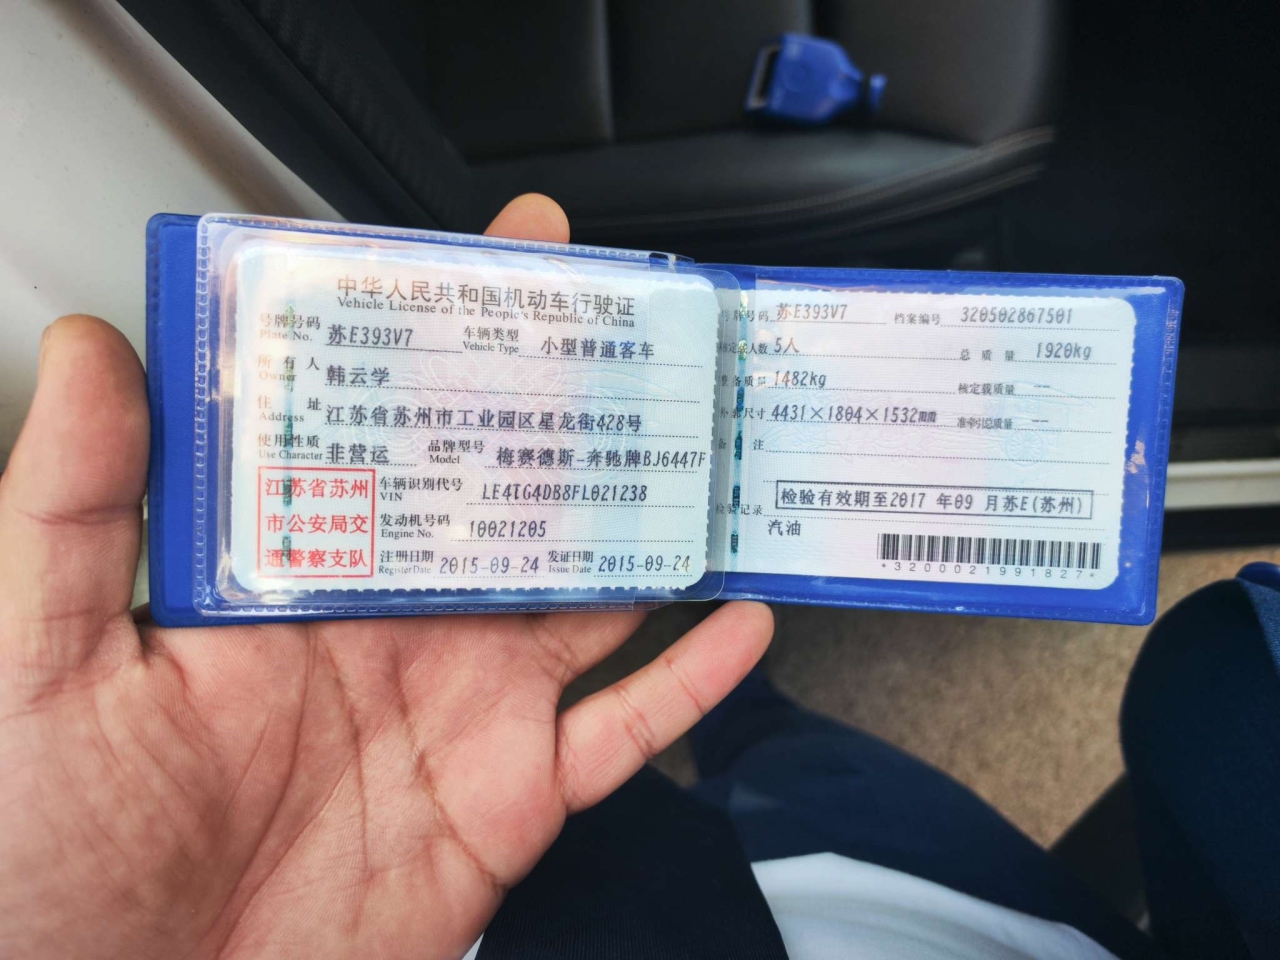 中华人民共和国机动车行驶证
Vehicle License of the People's Republic of China
号牌号码 苏E393V7 车辆类型 小型普通客车
Plate No. Vehicle Type
所有人 韩云学
Owner
住址 江苏省苏州市工业园区星龙街428号
Address
使用性质 非营运 品牌型号 梅赛德斯-奔驰牌BJ6447F
Use Character Model
江苏省苏州
市公安局交
通警察支队
车辆识别代号 LE4TG4DB8FL021238
VIN
发动机号码 10021205
Engine No.
注册日期 2015-09-24 发证日期 2015-09-24
Register Date Issue Date
号牌号码 苏E393V7 档案编号 320502867501
核定载人数 5人 总质量 1920kg
整备质量 1482kg 核定载质量 --
外廓尺寸 4431×1804×1532mm 准牵引总质量 --
备注
检验记录 检验有效期至2017 年09 月苏E(苏州)
汽油
*3200021991827*